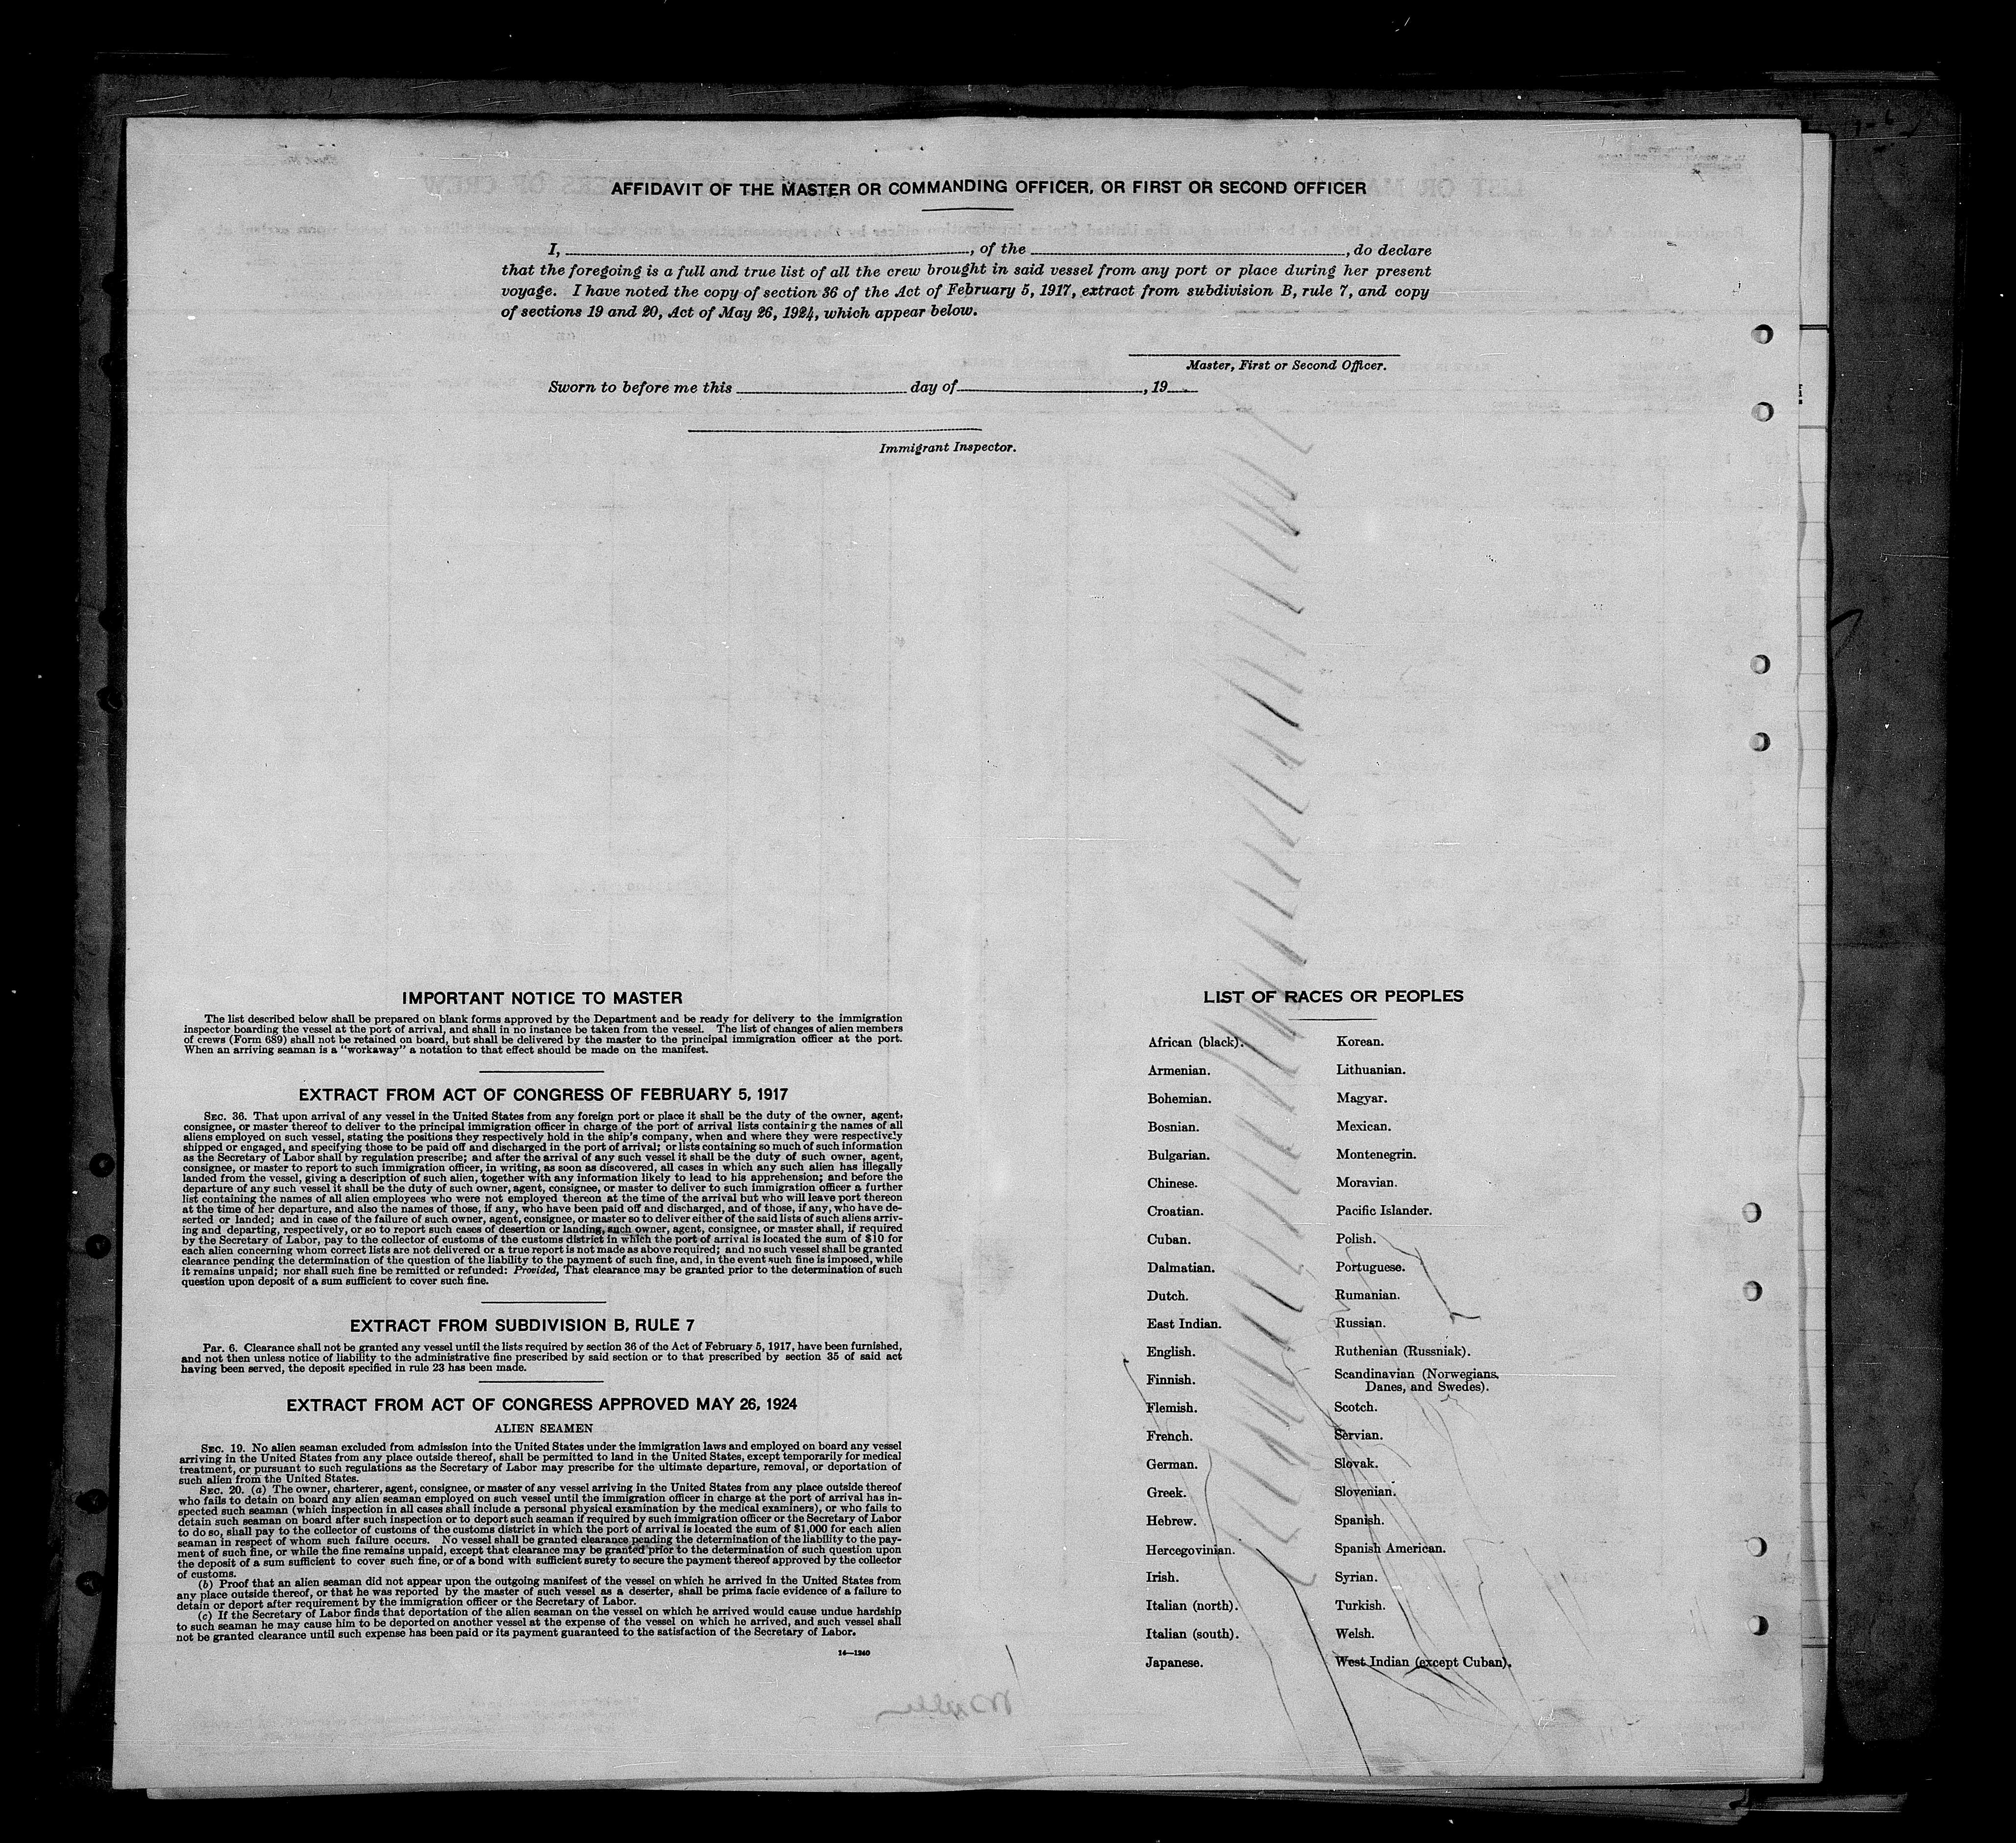 AFFIDAVIT OF THE MASTER OR COMMANDING OFFICER, OR FIRST OR SECOND OFFICER
I, , of the , do declare
that the foregoing is a full and true list of all the crew brought in said vessel from any port or place during her present
voyage. I have noted the copy of section 36 of the Act of February 5, 1917, extract from subdivision B, rule 7, and copy
of sections 19 and 20, Act of May 26, 1924, which appear below.
Master, First or Second Officer.
Sworn to before me this day of , 19
Immigrant Inspector.
IMPORTANT NOTICE TO MASTER
The list described below shall be prepared on blank forms approved by the Department and be ready for delivery to the immigration
inspector boarding the vessel at the port of arrival, and shall in no instance be taken from the vessel. The list of changes of alien members
of crews (Form 689) shall not be retained on board, but shall be delivered by the master to the principal immigration officer at the port.
When an arriving seaman is a "workaway" a notation to that effect should be made on the manifest.
EXTRACT FROM ACT OF CONGRESS OF FEBRUARY 5, 1917
SEC. 36. That upon arrival of any vessel in the United States from any foreign port or place it shall be the duty of the owner, agent,
consignee, or master thereof to deliver to the principal immigration officer in charge of the port of arrival lists containing the names of all
aliens employed on such vessel, stating the positions they respectively hold in the ship's company, when and where they were respectively
shipped or engaged, and specifying those to be paid off and discharged in the port of arrival; or lists containing so much of such information
as the Secretary of Labor shall by regulation prescribe; and after the arrival of any such vessel it shall be the duty of such owner, agent,
consignee, or master to report to such immigration officer, in writing, as soon as discovered, all cases in which any such alien has illegally
landed from the vessel, giving a description of such alien, together with any information likely to lead to his apprehension; and before the
departure of any such vessel it shall be the duty of such owner, agent, consignee, or master to deliver to such immigration officer a further
list containing the names of all alien employees who were not employed thereon at the time of the arrival but who will leave port thereon
at the time of her departure, and also the names of those, if any, who have been paid off and discharged, and of those, if any, who have de-
serted or landed; and in case of the failure of such owner, agent, consignee, or master so to deliver either of the said lists of such aliens arriv-
ing and departing, respectively, or so to report such cases of desertion or landing, such owner, agent, consignee, or master shall, if required
by the Secretary of Labor, pay to the collector of customs of the customs district in which the port of arrival is located the sum of $10 for
each alien concerning whom correct lists are not delivered or a true report is not made as above required; and no such vessel shall be granted
clearance pending the determination of the question of the liability to the payment of such fine, and, in the event such fine is imposed, while
it remains unpaid; nor shall such fine be remitted or refunded: Provided, That clearance may be granted prior to the determination of such
question upon deposit of a sum sufficient to cover such fine.
EXTRACT FROM SUBDIVISION B, RULE 7
Par. 6. Clearance shall not be granted any vessel until the lists required by section 36 of the Act of February 5, 1917, have been furnished,
and not then unless notice of liability to the administrative fine prescribed by said section or to that prescribed by section 35 of said act
having been served, the deposit specified in rule 23 has been made.
EXTRACT FROM ACT OF CONGRESS APPROVED MAY 26, 1924
ALIEN SEAMEN
SEC. 19. No alien seaman excluded from admission into the United States under the immigration laws and employed on board any vessel
arriving in the United States from any place outside thereof, shall be permitted to land in the United States, except temporarily for medical
treatment, or pursuant to such regulations as the Secretary of Labor may prescribe for the ultimate departure, removal, or deportation of
such alien from the United States.
SEC. 20. (a) The owner, charterer, agent, consignee, or master of any vessel arriving in the United States from any place outside thereof
who fails to detain on board any alien seaman employed on such vessel until the immigration officer in charge at the port of arrival has in-
spected such seaman (which inspection in all cases shall include a personal physical examination by the medical examiners), or who fails to
detain such seaman on board after such inspection or to deport such seaman if required by such immigration officer or the Secretary of Labor
to do so, shall pay to the collector of customs of the customs district in which the port of arrival is located the sum of $1,000 for each alien
seaman in respect of whom such failure occurs. No vessel shall be granted clearance pending the determination of the liability to the pay-
ment of such fine, or while the fine remains unpaid, except that clearance may be granted prior to the determination of such question upon
the deposit of a sum sufficient to cover such fine, or of a bond with sufficient surety to secure the payment thereof approved by the collector
of customs.
(b) Proof that an alien seaman did not appear upon the outgoing manifest of the vessel on which he arrived in the United States from
any place outside thereof, or that he was reported by the master of such vessel as a deserter, shall be prima facie evidence of a failure to
detain or deport after requirement by the immigration officer or the Secretary of Labor.
(c) If the Secretary of Labor finds that deportation of the alien seaman on the vessel on which he arrived would cause undue hardship
to such seaman he may cause him to be deported on another vessel at the expense of the vessel on which he arrived, and such vessel shall
not be granted clearance until such expense has been paid or its payment guaranteed to the satisfaction of the Secretary of Labor.
14—1240
LIST OF RACES OR PEOPLES
African (black).
Armenian.
Bohemian.
Bosnian.
Bulgarian.
Chinese.
Croatian.
Cuban.
Dalmatian.
Dutch.
East Indian.
English.
Finnish.
Flemish.
French.
German.
Greek.
Hebrew.
Hercegovinian.
Irish.
Italian (north).
Italian (south).
Japanese.
Korean.
Lithuanian.
Magyar.
Mexican.
Montenegrin.
Moravian.
Pacific Islander.
Polish.
Portuguese.
Rumanian.
Russian.
Ruthenian (Russniak).
Scandinavian (Norwegians,
Danes, and Swedes).
Scotch.
Servian.
Slovak.
Slovenian.
Spanish.
Spanish American.
Syrian.
Turkish.
Welsh.
West Indian (except Cuban).